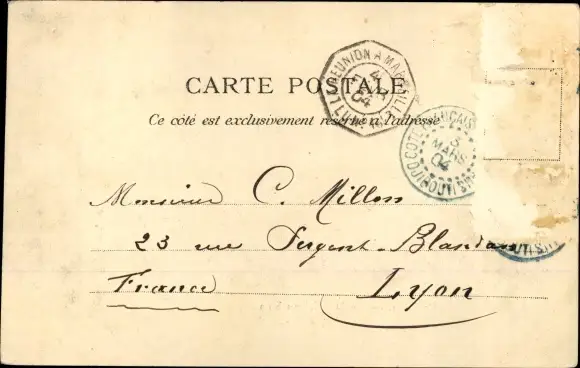 CARTE POSTALE
Ce côté est exclusivement réservé à l'adresse
LA REUNION A MARSEILLE
04
COTE FRANÇAISE
3
MARS
04
DJIBOUTI
Monsieur C. Millon
23 rue Sergent-Blandan
France Lyon